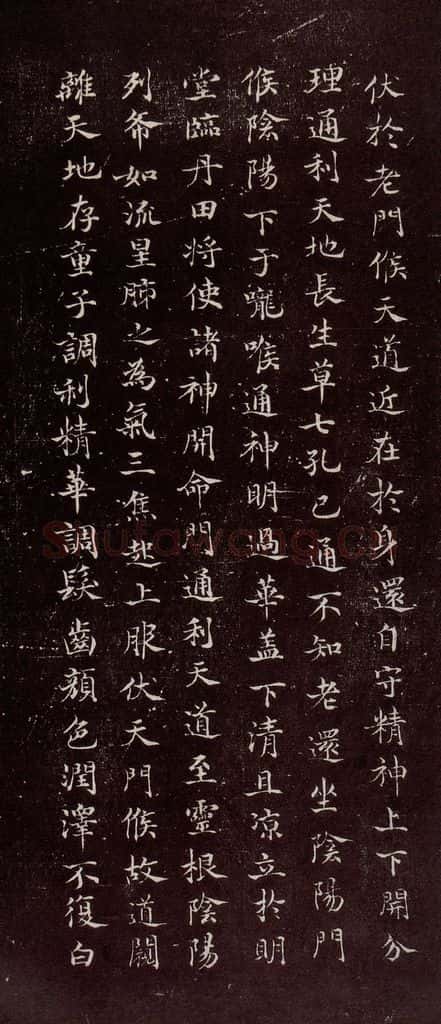 伏於老門候天道近在於身還自守精神上下開分
理通利天地長生草七孔已通不知老還坐陰陽門
候陰陽下于嚨喉通神明過華蓋下清且涼立於明
堂臨丹田將使諸神開命門通利天道至靈根陰陽
列布如流星肺之為氣三焦起上服伏天門候故道闚
離天地存童子調利精華調髮齒顏色潤澤不復白
Shufawang.cn